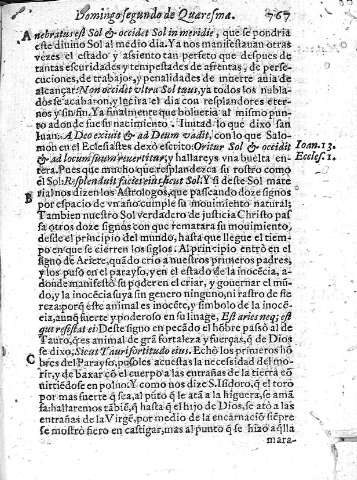 Domingo segundo de Quaresma. 767
A nebratur est Sol & occidet Sol in meridie, que se pondria
este diuino Sol al medio dia. Ya nos manifestauan otras
vezes el estado y assiento tan perfeto que despues de
tantas escuridades y tempestades de afrentas, de perse-
cuciones, de trabajos, y penalidades de muerte auia de
alcançar: Non occidet vltra Sol tuus, ya todos los nubla-
dos se acabaron, y luzira el dia con resplandores eter-
nos y sin fin. Ya finalmente que bolueria al mismo pun-
to adonde fue su nacimiento. Iuntad lo que dixo san
Iuan: A Deo exiuit & ad Deum vadit, con lo que Salo-
mon en el Eclesiastes dexò escrito: Oritur Sol & occidit Ioan. 13.
& ad locum suum reuertitur, y hallareys vna buelta en- Eccles. 1.
tera. Pues que mucho que resplandezca su rostro como
el Sol: Resplenduit facies eius sicut Sol. Y si deste Sol mate
B rial nos dizen los Astrologos, que passeando doze signos
por espacio de vn año cumple su mouimiento natural;
Tambien nuestro Sol verdadero de justicia Christo pas
sa otros doze signos con que rematara su mouimiento,
desde el principio del mundo, hasta que llegue el tiem-
po en que se cierren los siglos. Al principio entrò en el
signo de Ariete, quãdo crio a nuestros primeros padres,
y los puso en el parayso, y en el estado de la inocẽcia, a-
donde manifestò su poder en el criar, y gouernar el mũ-
do, y la inocẽcia suya sin genero ninguno, ni rastro de fie
reza: porq̃ este animal es inocẽte, y simbolo de la inocẽ-
cia, aunq̃ fuerte y poderoso en su linage, Est aries neq; est
que resistat ei: Deste signo en pecãdo el hõbre passò al de
Tauro, q̃ es animal de grã fortaleza y fuerças, q̃ de Dios
se dixo, Sicut Tauri fortitudo eius. Echò los primeros hõ
C bres del Parayso, pusoles acuestas la necessidad del mo-
rir, y de baxar cõ el cuerpo a las entrañas de la tierra cõ
uirtiẽdose en poluo. Y como nos dize S. Isidoro, q̃ el toro
por mas fuerte q̃ sea, al pũto q̃ le atã a la higuera, se amã
sa: hallaremos tãbiẽ, q̃ hasta q̃ el hijo de Dios, se atò a las
entrañas de la Virgẽ, por medio de la encarnaciõ siẽpre
se mostrò fiero en castigar, mas al punto q̃ se hizo aq̃lla
mara-